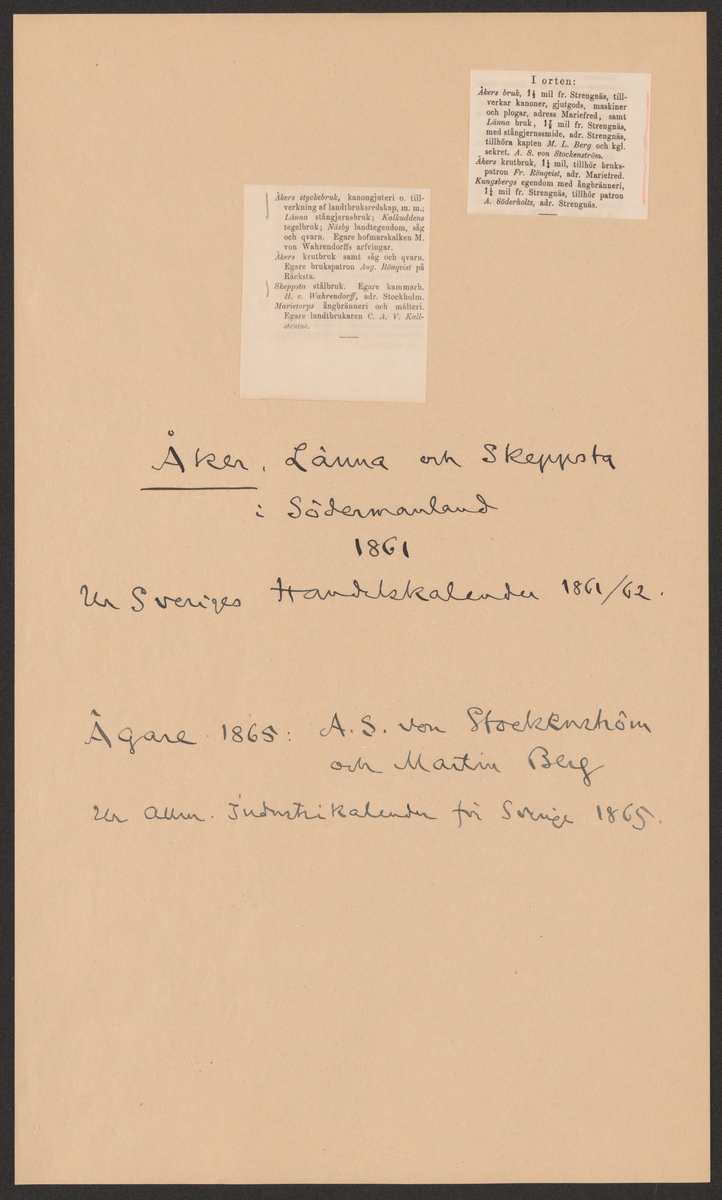 I orten:
Åkers bruk, 1½ mil fr. Strengnäs, till-
verkar kanoner, gjutgods, maskiner
och plogar, adress Mariefred, samt
Länna bruk, 1¾ mil fr. Strengnäs,
med stångjernssmide, adr. Strengnäs,
tillhöra kapten M. L. Berg och kgl.
sekret. A. S. von Stockenström.
Åkers krutbruk, 1½ mil, tillhör bruks-
patron Fr. Rönqvist, adr. Mariefred.
Kungsbergs egendom med ångbränneri,
1¼ mil fr. Strengnäs, tillhör patron
A. Söderholtz, adr. Strengnäs.
Åkers styckebruk, kanongjuteri o. till-
verkning af landtbruksredskap, m. m.;
Länna stångjernsbruk; Kalkuddens
tegelbruk; Näsby landtegendom, såg
och qvarn. Egare hofmarskalken M.
von Wahrendorffs arfvingar.
Åkers krutbruk samt såg och qvarn.
Egare brukspatron Aug. Rönqvist på
Räcksta.
Skeppsta stålbruk. Egare kammarh.
H. v. Wahrendorff, adr. Stockholm.
Marietorps ångbränneri och mälteri.
Egare landtbrukaren C. A. V. Kall-
stenius.
Åker, Länna och Skeppsta
i Södermanland
1861
Ur Sveriges Handelskalender 1861/62.
Ägare 1865: A. S. von Stockenström
och Martin Berg
Ur Allm. Industrikalender för Sverige 1865.